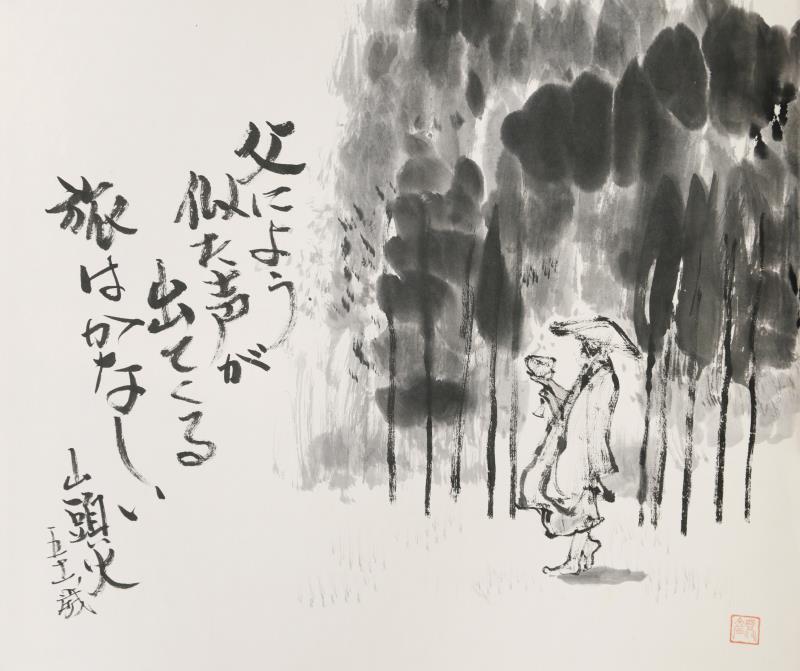 父によう
似た声が
出てくる
旅はかなしい
山頭火